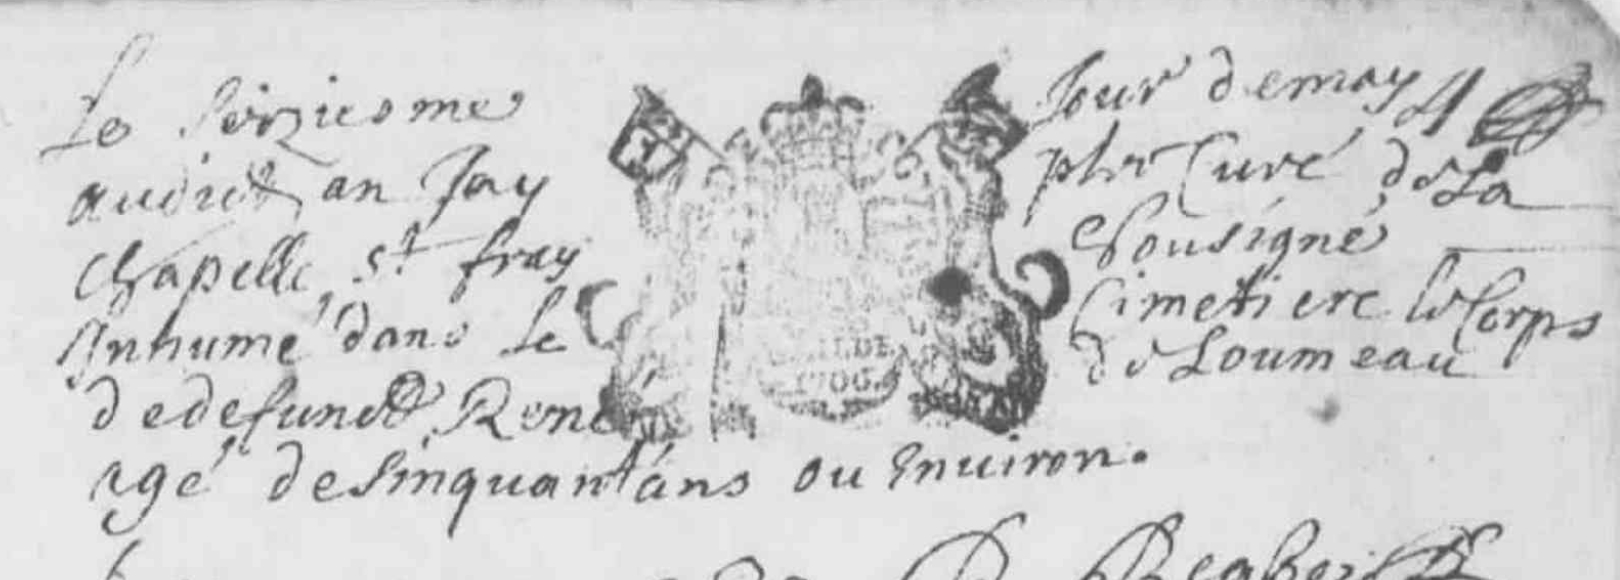 Le Seiziesme Jour de may
audict an Jay pbr Curé de La
Chapelle St fray Sousigné
Inhumé dans le Cimetiere le Corps
de defunct René de Loumeau
agé de Sinquant'ans ou Environ.
1706.